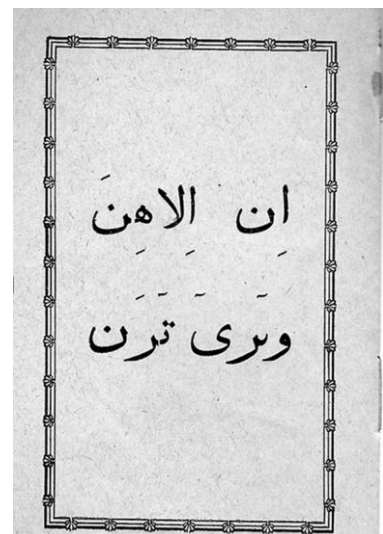 اِن اِلاهِنَ
وىَرىَ تَرَن